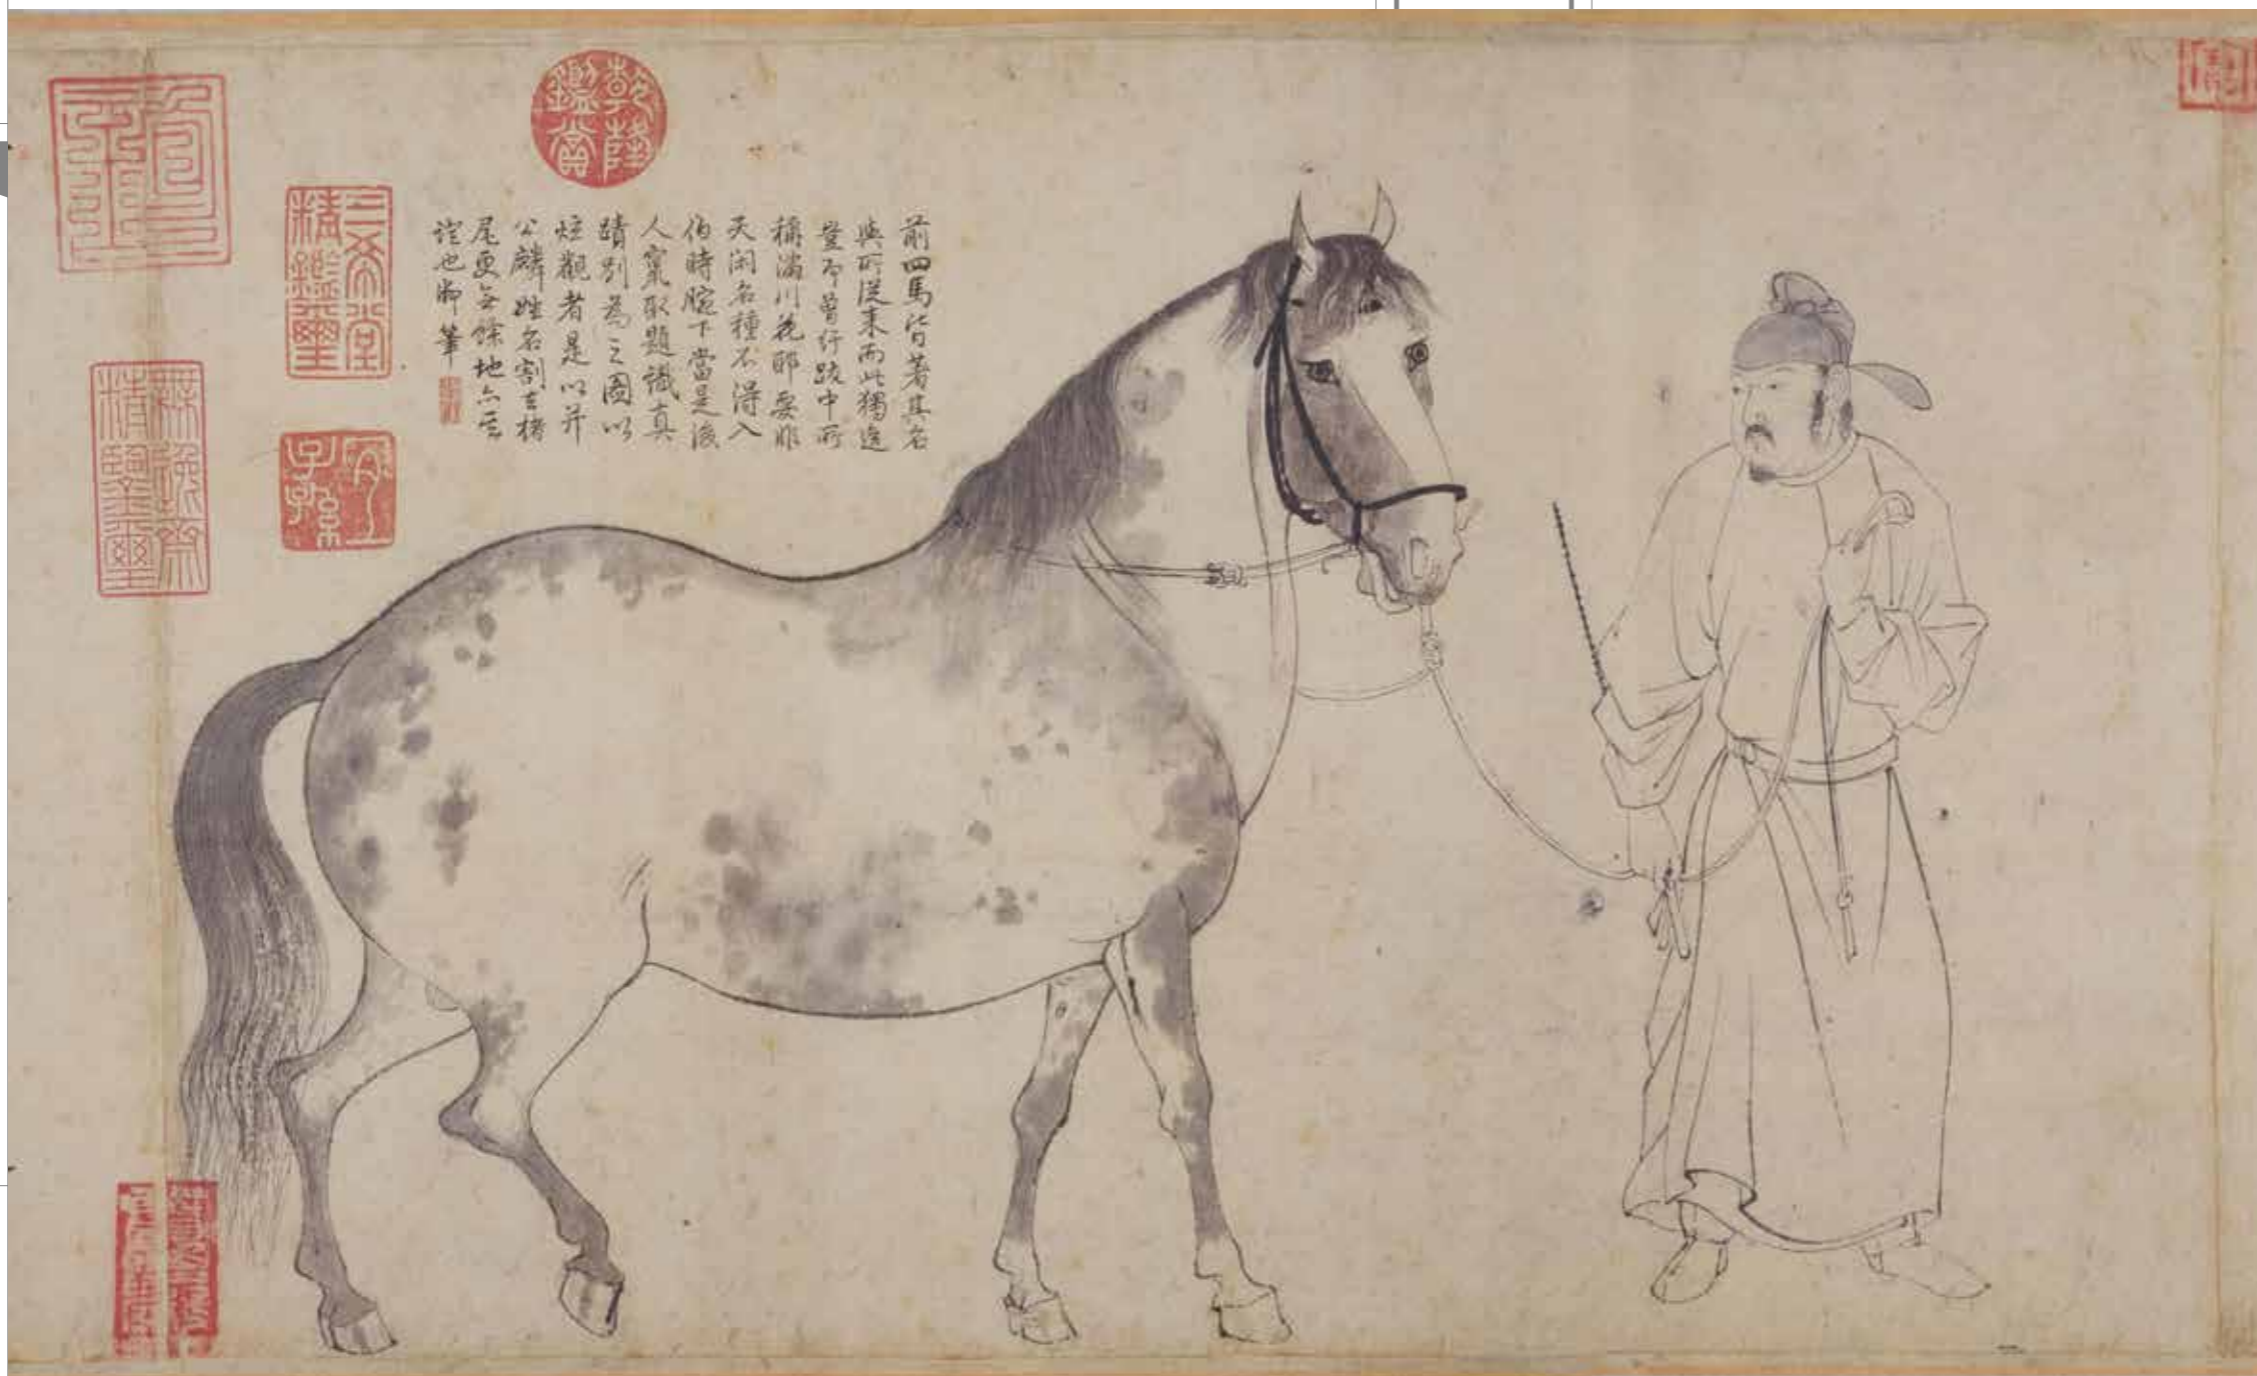 前四馬皆著其名
與所從來而此獨逸
豈即曾紆跋中所
稱滿川花耶要非
天閑名種不得入
伯時腕下當是後
人竄取題識真
蹟別為之圖以
炫觀者是以并
公麟姓名割去楮
尾更無餘地亦足
證也御筆
乾隆鑑賞
三希堂精鑑璽
宜子孫
無逸齋精鑒璽